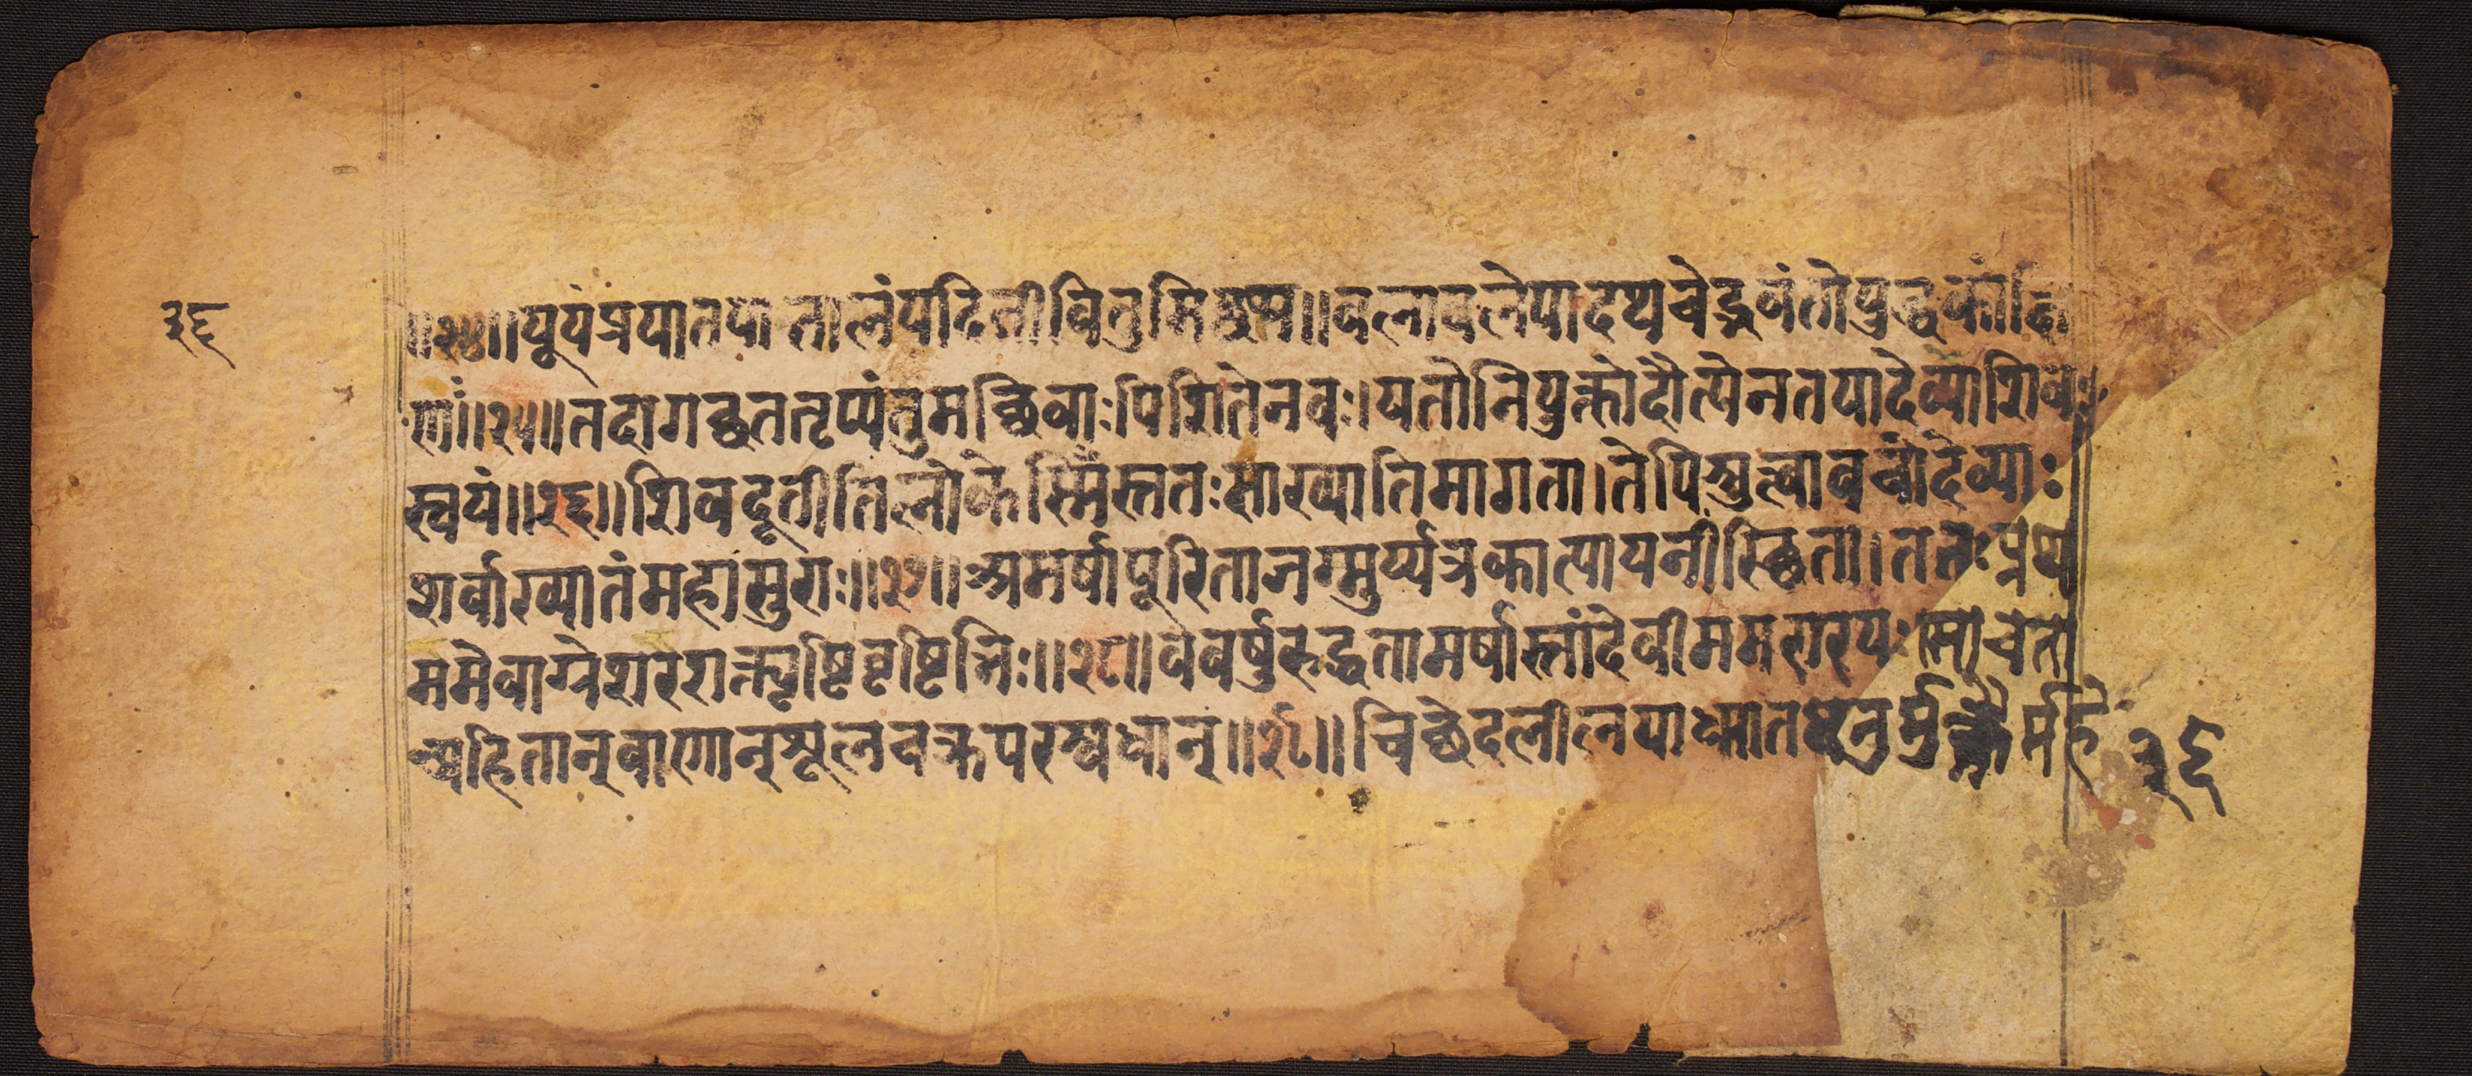 ३६
॥२४॥यूयंप्रयातपातालंयदिजीवितुमिच्छथ॥बलावलेपादथचेद्भवंतोयुद्धकांक्षि
णः॥२५॥तदागच्छततृप्यंतुमच्छिवाःपिशितेनवः।यतोनियुक्तोदौत्येनतयादेव्याशिवः
स्वयं॥२६॥शिवदूतीतिलोकेस्मिंस्ततःसाख्यातिमागता।तेपिश्रुत्वावचोदेव्याः
शर्वाख्यातंमहासुराः॥२७॥अमर्षापूरिताजग्मुर्य्यत्रकात्यायनीस्थिता।ततःप्रथ
ममेवाग्रेशरशक्त्यृष्टिवृष्टिभिः॥२८॥ववर्षुरुद्धतामर्षास्तांदेवीममरारयः।साचता
न्प्रहितान्बाणान्शूलचक्रपरश्वधान्॥२९॥चिच्छेदलीलयाध्मातधनुर्मुक्तैर्महे
३६